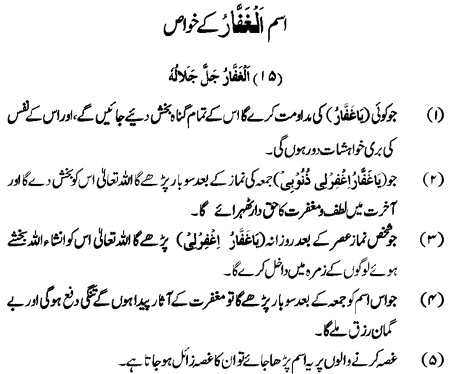 اسم اَلْغَفَّارُ کے خواص
(۱۵) اَلْغَفَّارُ جَلَّ جَلَالُهٗ
(۱) جو کوئی (یَاغَفَّارُ) کی مداومت کرے گا اس کے تمام گناہ بخش دئیے جائیں گے، اور اس کے نفس
کی بری خواہشات دور ہوں گی۔
(۲) جو (یَاغَفَّارُ اغْفِرْلِی ذُنُوْبِیْ) جمعہ کی نماز کے بعد سو بار پڑھے گا اللہ تعالیٰ اس کو بخش دے گا اور
آخرت میں لطف و مغفرت کا حق دار ٹھہرائے گا۔
(۳) جو شخص نماز عصر کے بعد روزانہ (یَاغَفَّارُ اِغْفِرْلِیْ) پڑھے گا اللہ تعالیٰ اس کو انشاء اللہ بخشے
ہوئے لوگوں کے زمرہ میں داخل کرے گا۔
(۴) جو اس اسم کو جمعہ کے بعد سو بار پڑھے گا تو مغفرت کے آثار پیدا ہوں گے تنگی دفع ہو گی اور بے
گمان رزق ملے گا۔
(۵) غصہ کرنے والوں پر یہ اسم پڑھا جائے تو ان کا غصہ زائل ہو جاتا ہے۔